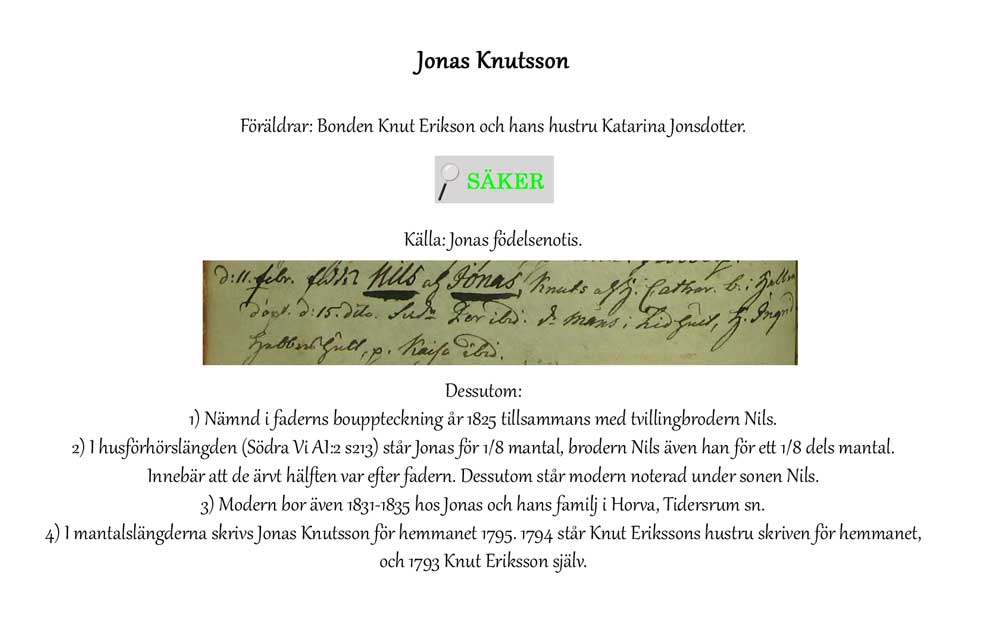 Jonas Knutsson
Föräldrar: Bonden Knut Erikson och hans hustru Katarina Jonsdotter.
SÄKER
Källa: Jonas födelsenotis.
d: 11. febr. Nils Jonas, Knuts Cathar. b. i
döpt. d: 15. dito. ibid. i
p. Kaisa ibid.
Dessutom:
1) Nämnd i faderns bouppteckning år 1825 tillsammans med tvillingbrodern Nils.
2) I husförhörslängden (Södra Vi AI:2 s213) står Jonas för 1/8 mantal, brodern Nils även han för ett 1/8 dels mantal.
Innebär att de ärvt hälften var efter fadern. Dessutom står modern noterad under sonen Nils.
3) Modern bor även 1831-1835 hos Jonas och hans familj i Horva, Tidersrum sn.
4) I mantalslängderna skrivs Jonas Knutsson för hemmanet 1795. 1794 står Knut Erikssons hustru skriven för hemmanet,
och 1793 Knut Eriksson själv.